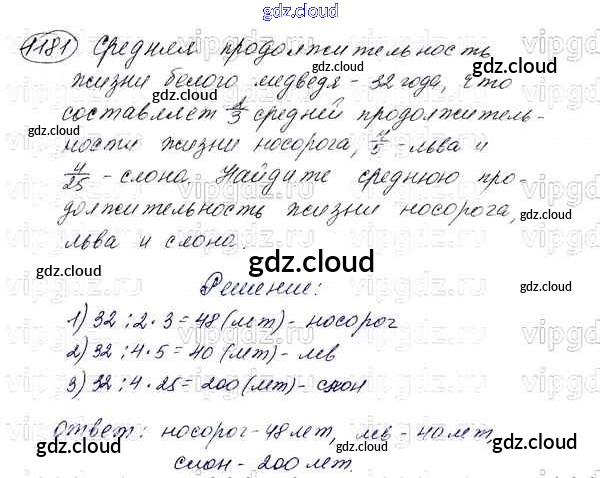 gdz.cloud
1181 Средняя продолжительность
жизни белого медведя - 32 года, что
составляет 2/3 средней продолжитель-
ности жизни носорога, 4/5 - льва и
4/25 - слона. Найдите среднюю про-
должительность жизни носорога,
льва и слона.
gdz.cloud
Решение:
1) 32 : 2 · 3 = 48 (лет) - носорог
2) 32 : 4 · 5 = 40 (лет) - лев
3) 32 : 4 · 25 = 200 (лет) - слон
Ответ: носорог - 48 лет, лев - 40 лет,
слон - 200 лет.